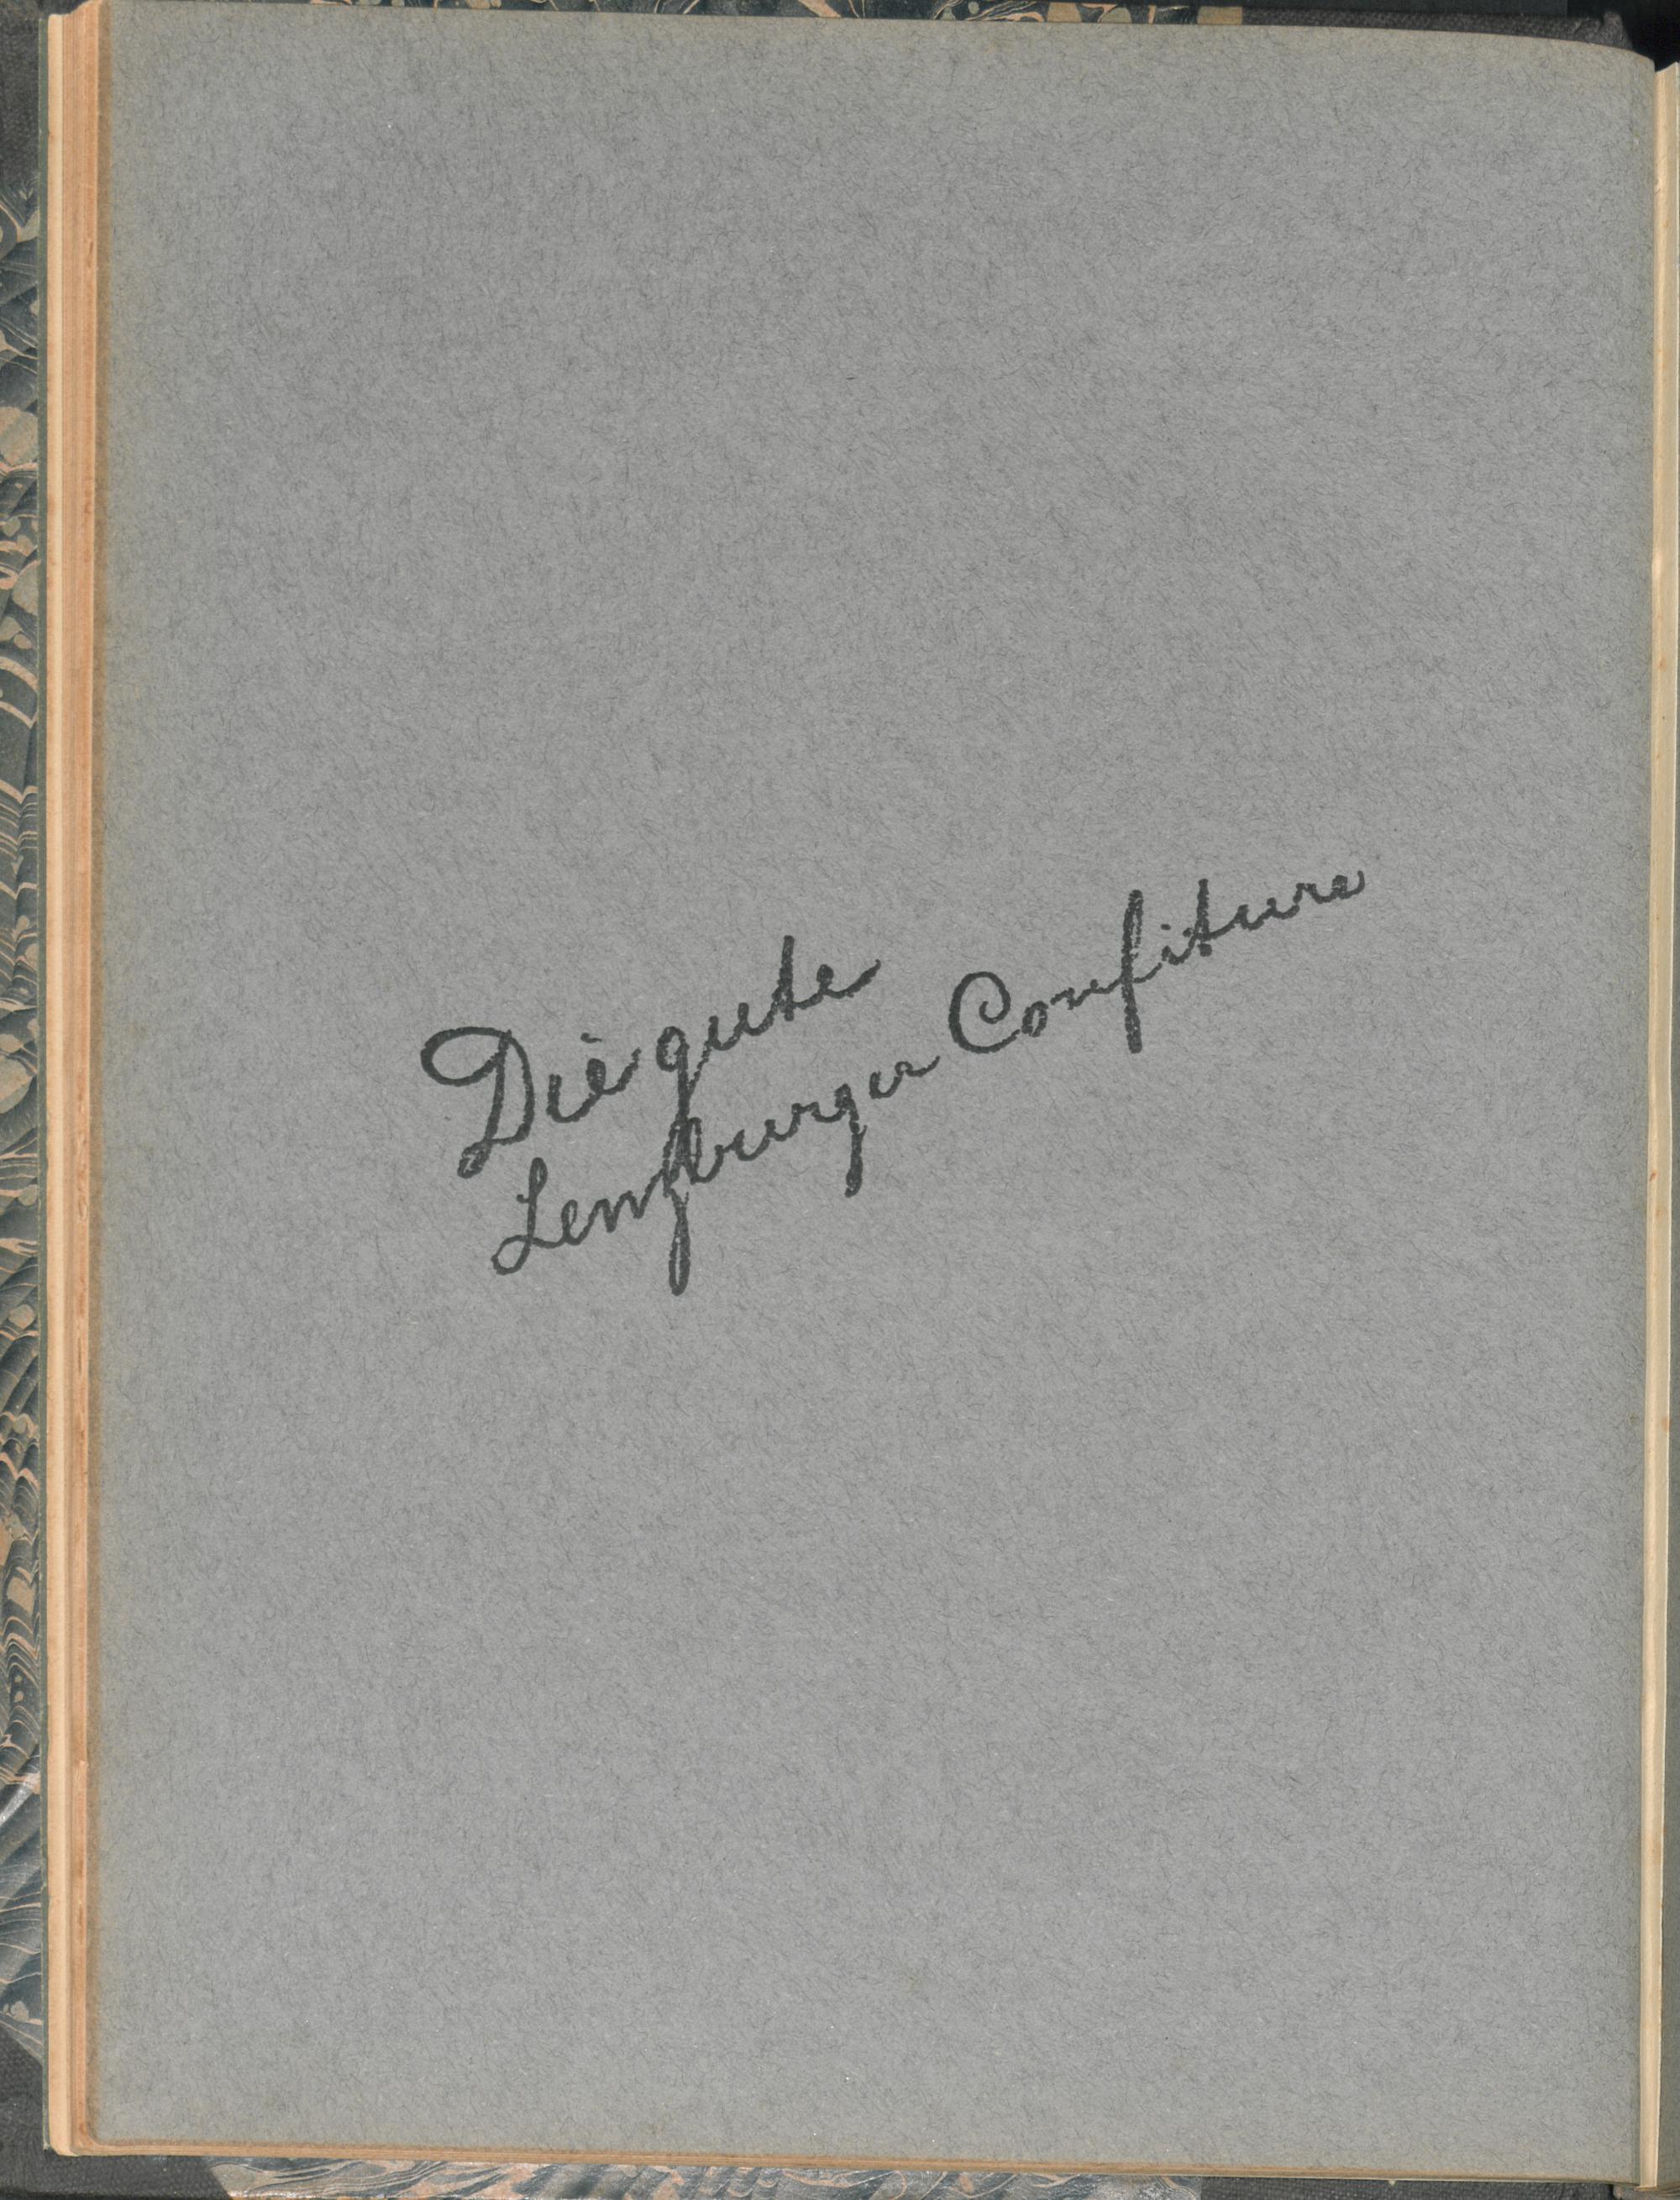 Die gute
Lenzburger Confiture